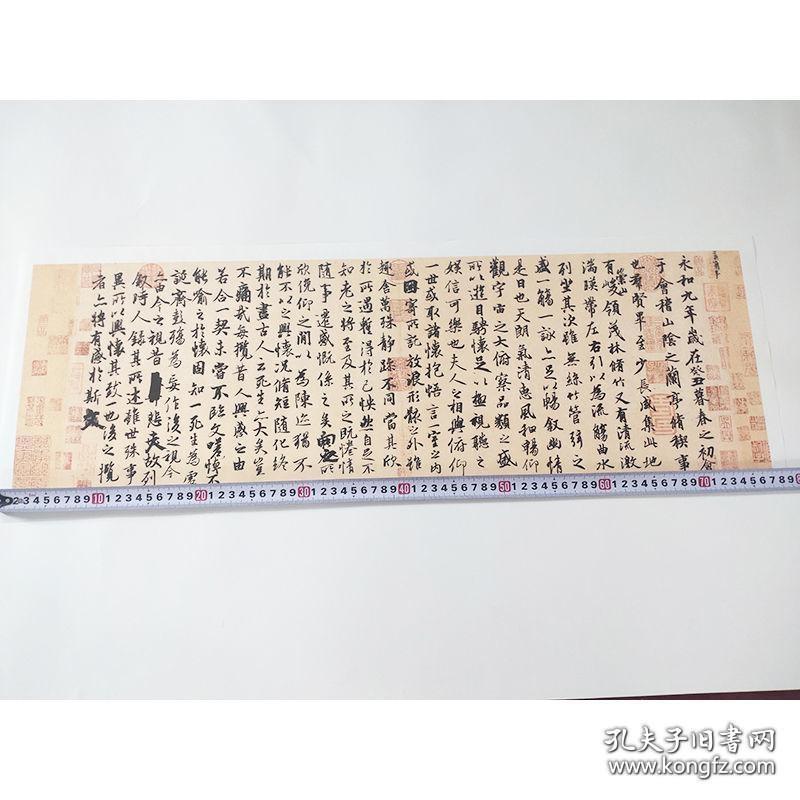 永和九年歲在癸丑暮春之初會
于會稽山陰之蘭亭脩稧事
也羣賢畢至少長咸集此地
有崇山峻領茂林脩竹又有清流激
湍暎帶左右引以為流觴曲水
列坐其次雖無絲竹管弦之
盛一觴一詠亦足以暢敘幽情
是日也天朗氣清惠風和暢仰
觀宇宙之大俯察品類之盛
所以遊目騁懷足以極視聽之
娛信可樂也夫人之相與俯仰
一世或取諸懷抱悟言一室之內
或因寄所託放浪形骸之外雖
趣舍萬殊靜躁不同當其欣
於所遇蹔得於己怏然自足不
知老之將至及其所之既惓情
隨事遷感慨係之矣向之所
欣俛仰之閒以為陳迹猶不
能不以之興懷況脩短隨化終
期於盡古人云死生亦大矣豈
不痛哉每攬昔人興感之由
若合一契未嘗不臨文嗟悼不
能喻之於懷固知一死生為虛
誕齊彭殤為妄作後之視今
亦由今之視昔悲夫故列
敘時人錄其所述雖世殊事
異所以興懷其致一也後之攬
者亦將有感於斯文
2 3 4 5 6 7 8 9 10 1 2 3 4 5 6 7 8 9 20 1 2 3 4 5 6 7 8 9 30 1 2 3 4 5 6 7 8 9 40 1 2 3 4 5 6 7 8 9 50 1 2 3 4 5 6 7 8 9 60 1 2 3 4 5 6 7 8 9 70 1 2 3 4 5 6 7 8 9
孔夫子旧书网
kongfz.com